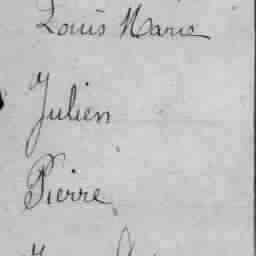 Louis Marie
Julien
Pierre